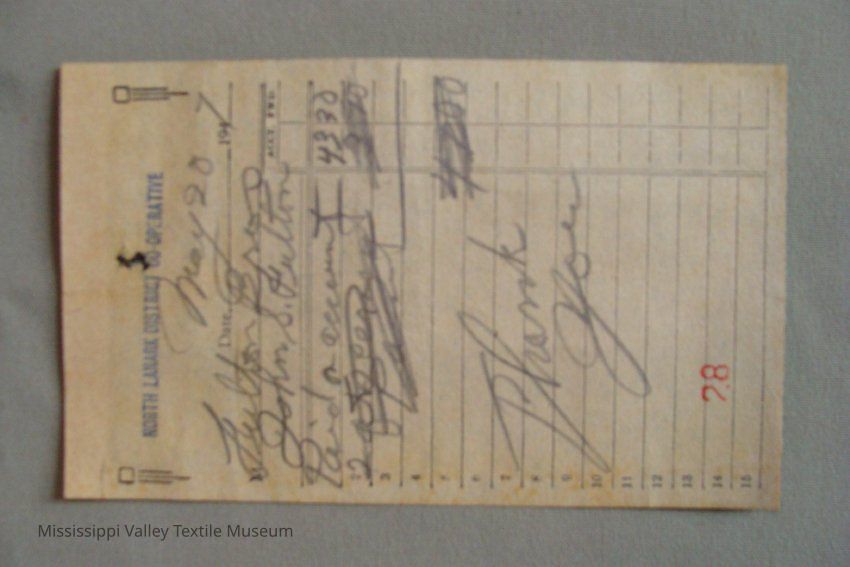 NORTH LANARK DISTRICT CO-OPERATIVE
May 20
Date, 1947
Fulton Bros
John S. Fulton
ACCT. FWD.
1 Paid on account 43 30
2
3
4
5 42 00
6
7 Thank
8
9 You
10
11
12
13
14
15
28
Mississippi Valley Textile Museum